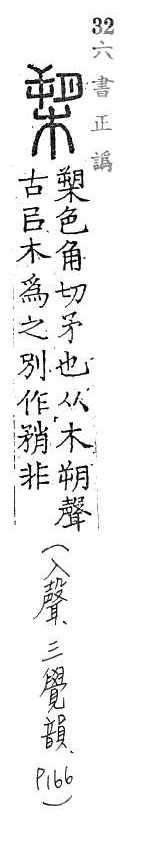 32六書正譌
槊
槊色角切矛也从木朔聲
古㠯木爲之別作矟非
(入聲、三覺韻、P166)